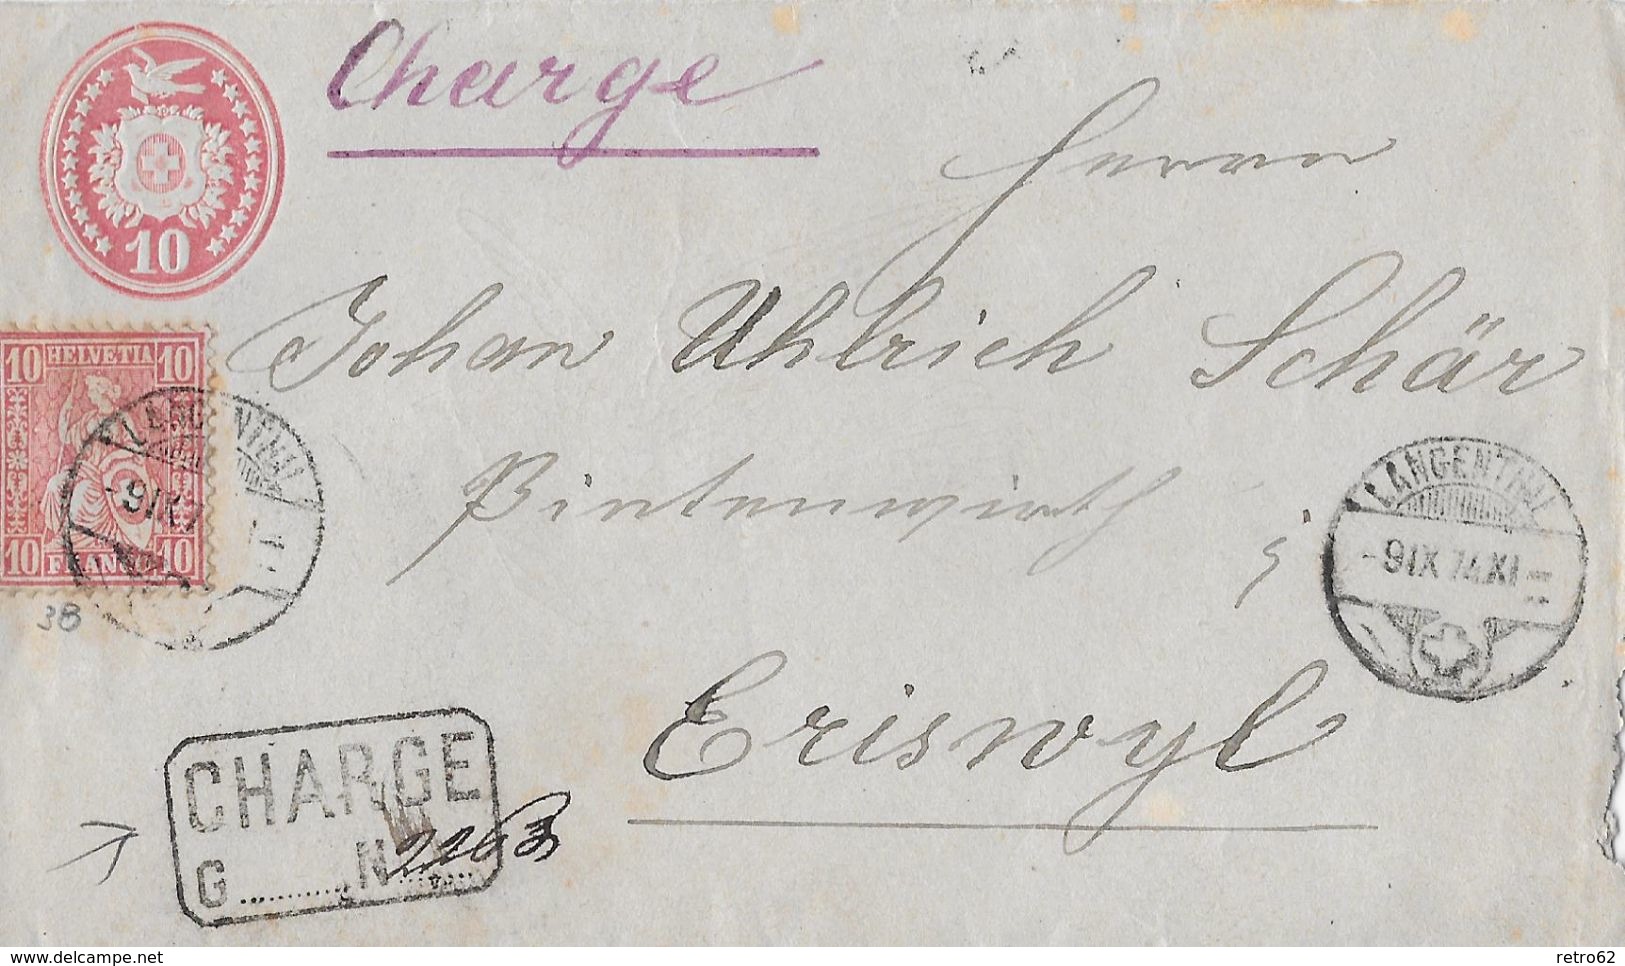 Charge
10
Herrn
Johan Uhlrich Schär
10 HELVETIA 10
10 FRANCO 10
LANGENTHAL
9 IX
Pintenwirth
LANGENTHAL
-9 IX 74 XI
38
Eriswyl
CHARGE
G.......... N 2263
delcampe.net
retro62